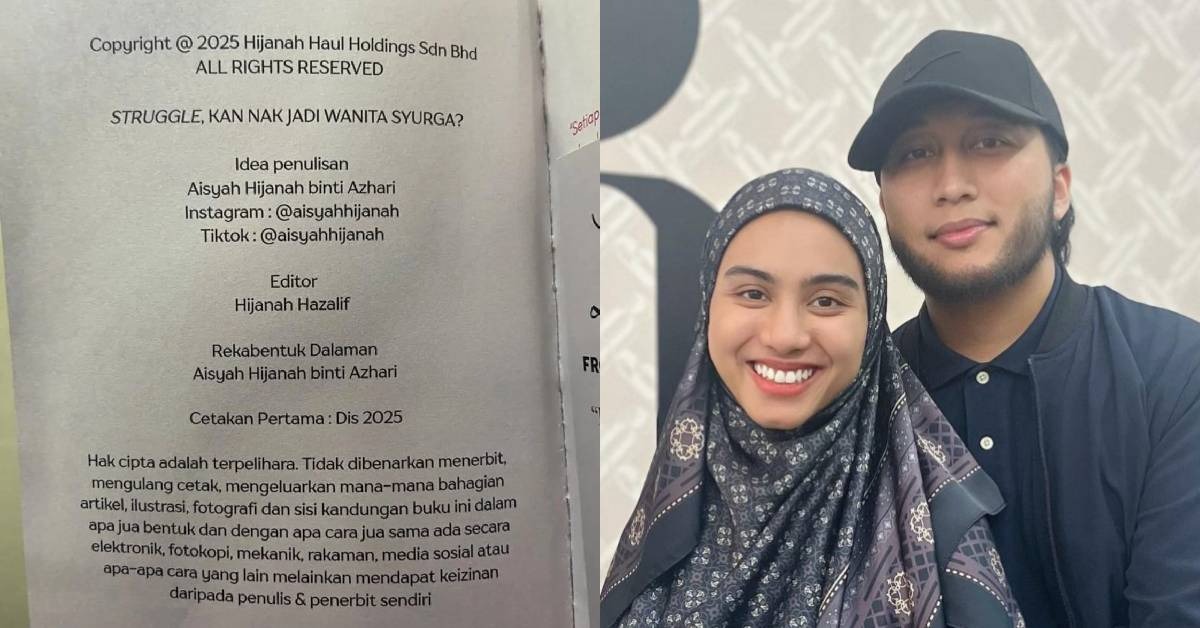 Copyright @ 2025 Hijanah Haul Holdings Sdn Bhd
ALL RIGHTS RESERVED
STRUGGLE, KAN NAK JADI WANITA SYURGA?
Idea penulisan
Aisyah Hijanah binti Azhari
Instagram : @aisyahhijanah
Tiktok : @aisyahhijanah
Editor
Hijanah Hazalif
Rekabentuk Dalaman
Aisyah Hijanah binti Azhari
Cetakan Pertama : Dis 2025
Hak cipta adalah terpelihara. Tidak dibenarkan menerbit,
mengulang cetak, mengeluarkan mana-mana bahagian
artikel, ilustrasi, fotografi dan sisi kandungan buku ini dalam
apa jua bentuk dan dengan apa cara jua sama ada secara
elektronik, fotokopi, mekanik, rakaman, media sosial atau
apa-apa cara yang lain melainkan mendapat keizinan
daripada penulis & penerbit sendiri
"Setiap